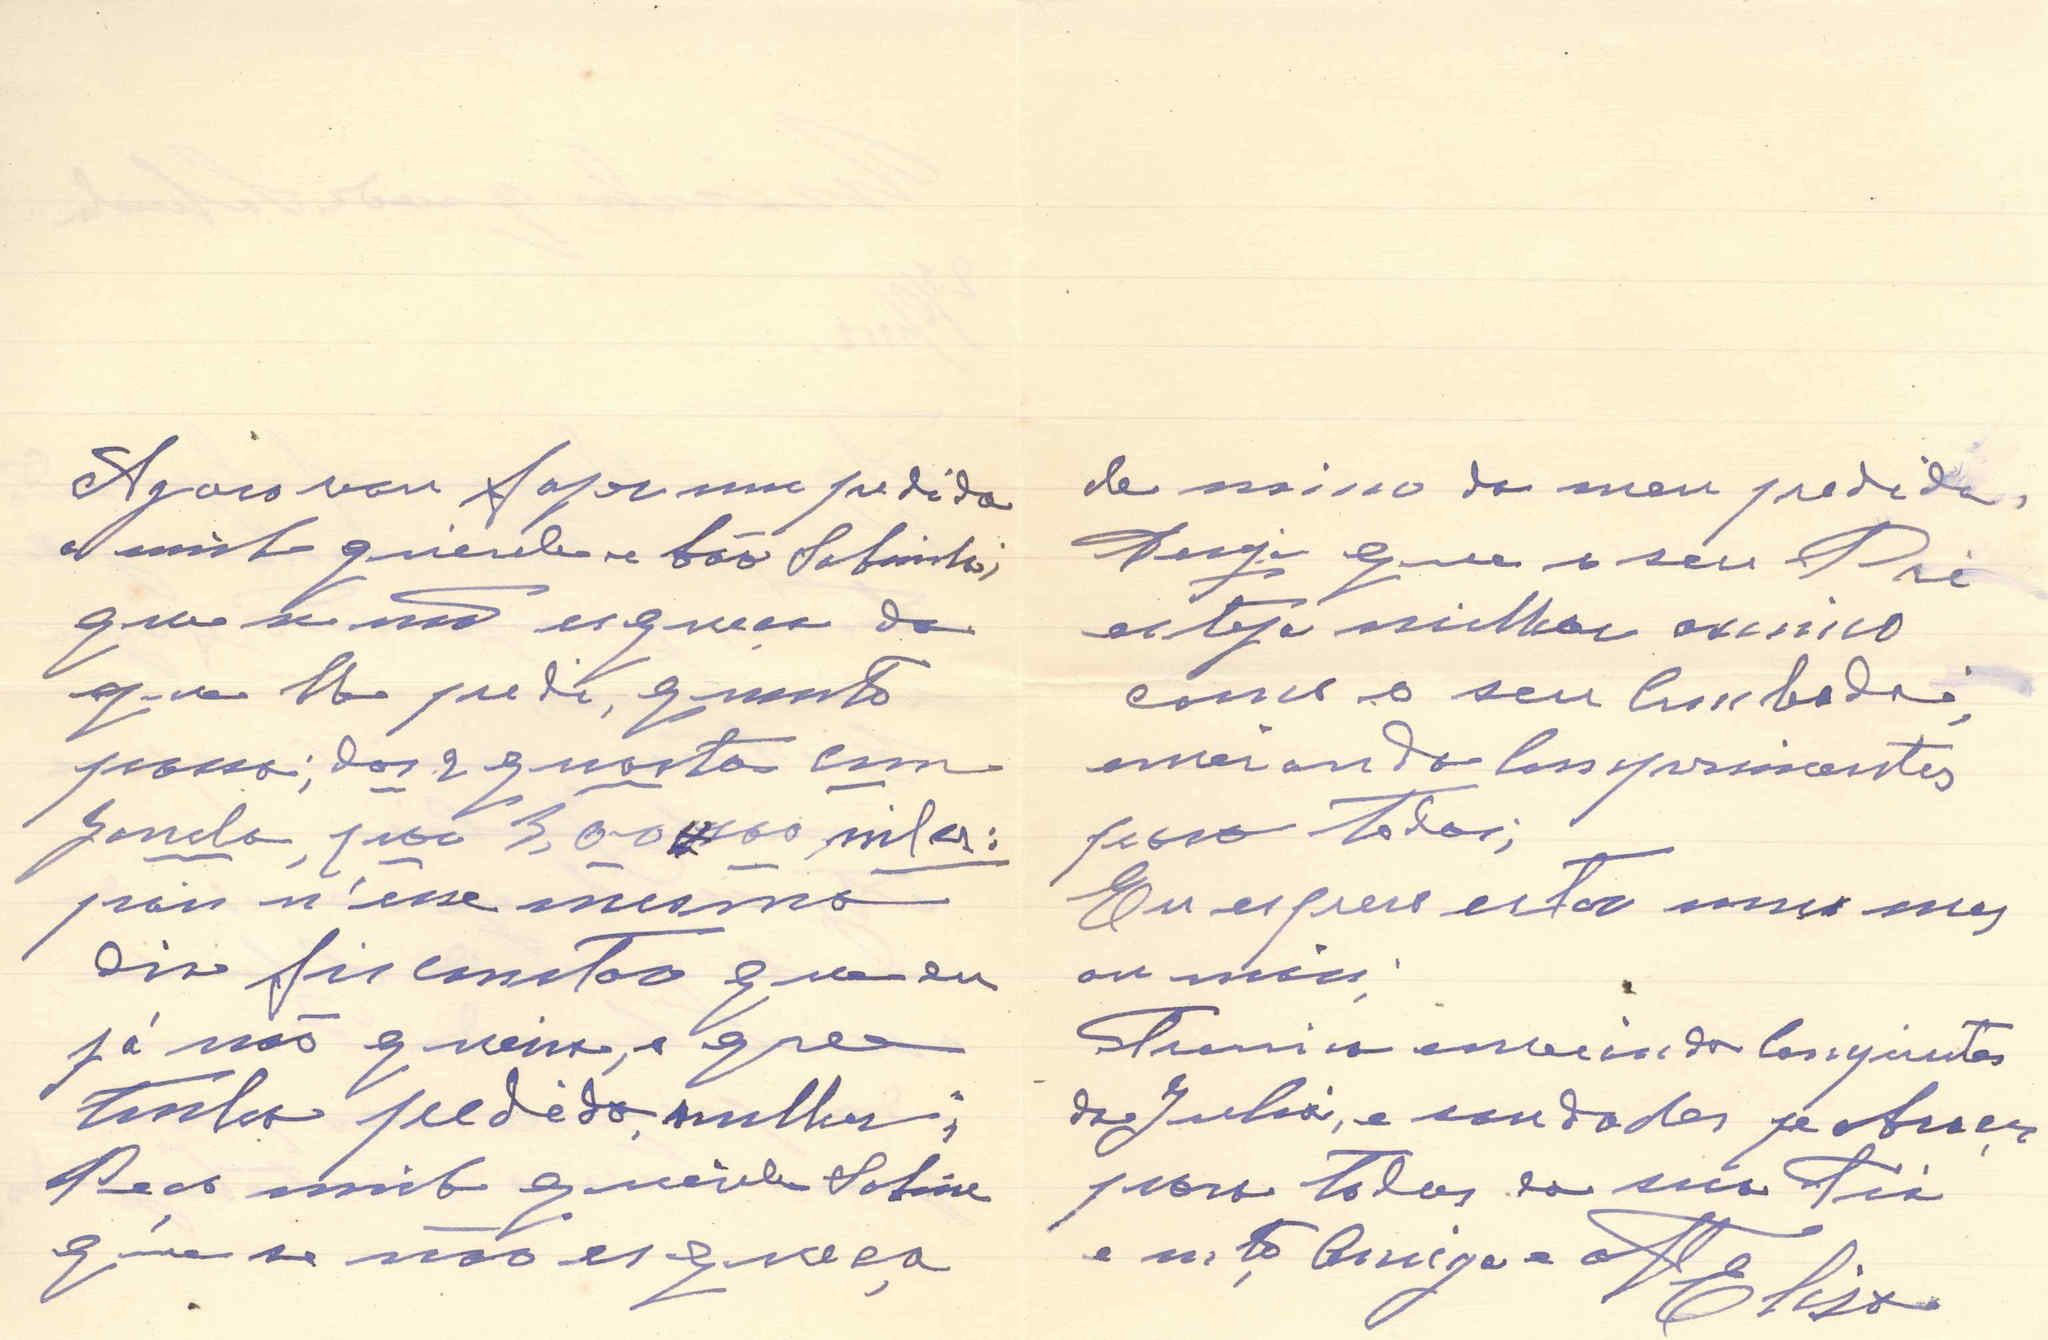 Agora vou fazer um pedido
a minha querida e bôa Sobrinha,
que se não esqueça do
que lhe pedi, quanto
posso; dos 2 quartos com
Janela, por 3,00 mil rs:
pois n'esse mesmo
dia fiz contar que eu
já não queria, e que
tinha pedido, milhor;
Peço minha querida Sobrinha
que se não esqueça
do meu pedido,
Desejo que o seu Pai
esteja milhor assim
como o seu Cunhado;
enviando Comprimentos
para todos;
Eu espero estar um mes
ou mais;
Termino enviando Compintos
da Julia, e saudades e Abraços
para todos da sua Tia
e mto Amiga e
Elisa